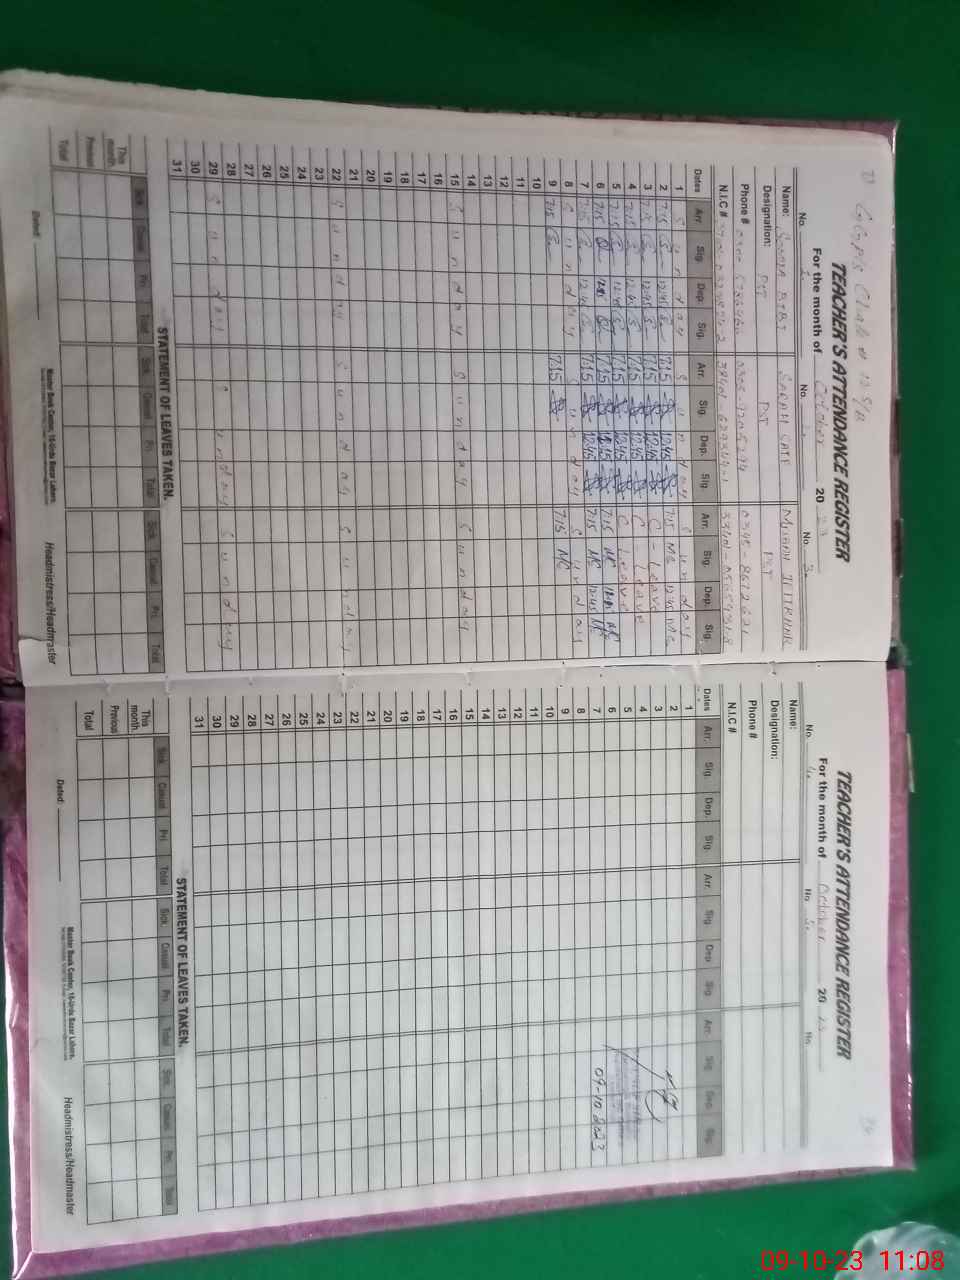 TEACHER'S ATTENDANCE REGISTER
For the month of October 20 23
No. 1. No. 2. No. 3.
Name: BIBI SARAH
Designation: PST PST PST
Phone #
N.I.C #
Dates Arr. Sig. Dep. Sig. Arr. Sig. Dep. Sig. Arr. Sig. Dep. Sig.
1 Sunday Sunday Sunday
2 7:15 12:45 7:15 12:45 7:15 12:45
3 7:15 12:45 7:15 12:45 C - Leave
4 7:15 12:45 7:15 12:45 C - Leave
5 7:15 12:45 7:15 12:45 C - Leave
6 7:15 12:45 7:15 12:45 7:15 12:45
7 7:15 12:45 7:15 12:45 7:15 12:45
8 Sunday Sunday Sunday
9 7:15 7:15 7:15
10
11
12
13
14
15 Sunday Sunday Sunday
16
17
18
19
20
21
22 Sunday Sunday Sunday
23
24
25
26
27
28
29 Sunday Sunday Sunday
30
31
STATEMENT OF LEAVES TAKEN.
Sick Casual Pri. Total Sick Casual Pri. Total Sick Casual Pri. Total
This month
Previous
Total
Master Book Center, 16-Urdu Bazar Lahore.
Dated: Headmistress/Headmaster
TEACHER'S ATTENDANCE REGISTER
For the month of October 20 23
No. 4. No. 5. No.
Name:
Designation:
Phone #
N.I.C #
Dates Arr. Sig. Dep. Sig. Arr. Sig. Dep. Sig. Arr. Sig. Dep. Sig.
1
2
3
4
5
6
7 09-10 2023
8
9
10
11
12
13
14
15
16
17
18
19
20
21
22
23
24
25
26
27
28
29
30
31
STATEMENT OF LEAVES TAKEN.
Sick Casual Pri. Total Sick Casual Pri. Total Sick Casual Pri. Total
This month
Previous
Total
Master Book Center, 16-Urdu Bazar Lahore.
Dated: Headmistress/Headmaster
09-10-23 11:08